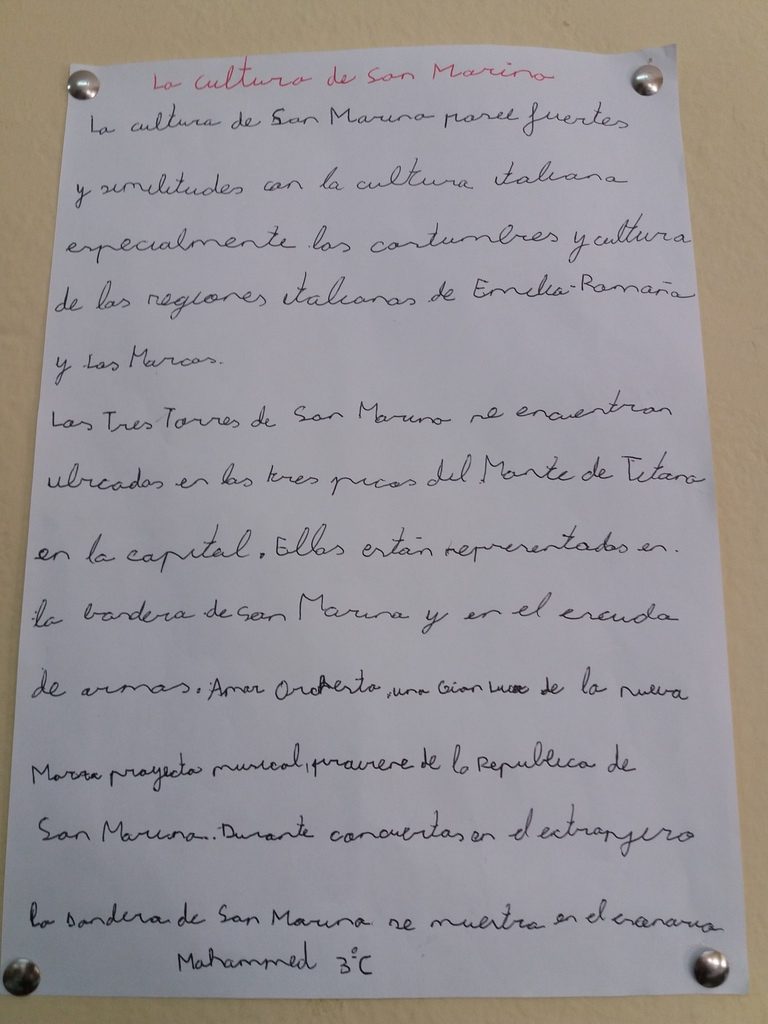 La cultura de San Marino
La cultura de San Marino posee fuertes
y similitudes con la cultura italiana
especialmente las costumbres y cultura
de las regiones italianas de Emilia-Romaña
y Las Marcas.
Las Tres Torres de San Marino se encuentran
ubicadas en los tres picos del Monte de Titano
en la capital. Ellas están representadas en.
la bandera de San Marino y en el escudo
de armas. Amar Orchesta, una Gian Luca de la nueva
Marza proyecto musical, proviene de la Republica de
San Marino. Durante conciertos en el extranjero
la bandera de San Marino se muestra en el escenario
Mohammed 3ºC